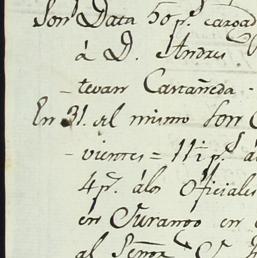 Son Data 50 p.s cargad
á D. Andres
tevan Castañeda
En 31. al mismo Son
vientes = 11½ p.s
4 p.s á los Oficiales
en Durango en
al Señor